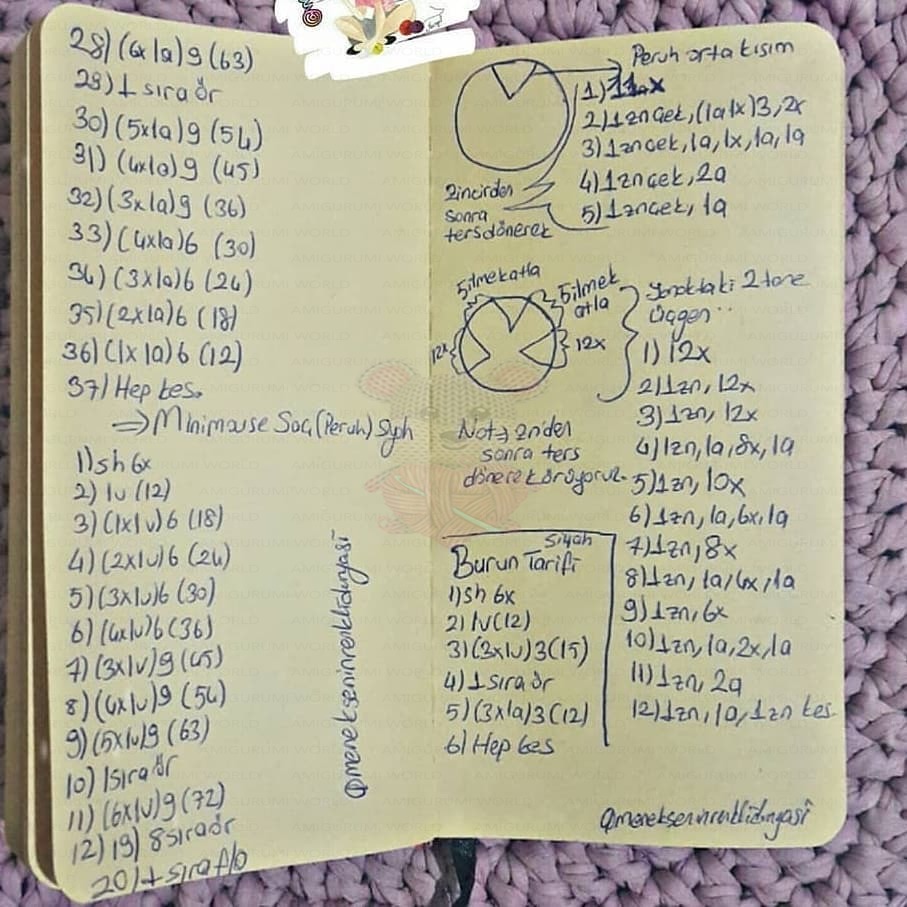 28) (6x1a)9 (63)
29) 1 sıra ör
30) (5x1a)9 (54)
31) (4x1a)9 (45)
32) (3x1a)9 (36)
33) (4x1a)6 (30)
34) (3x1a)6 (24)
35) (2x1a)6 (18)
36) (1x1a)6 (12)
37) Hep kes.
⇒ Minimouse Saç (Peruk) Syh
1) sh 6x
2) 1v (12)
3) (1x1v)6 (18)
4) (2x1v)6 (24)
5) (3x1v)6 (30)
6) (4x1v)6 (36)
7) (3x1v)9 (45)
8) (4x1v)9 (54)
9) (5x1v)9 (63)
10) 1 sıra ör
11) (6x1v)9 (72)
12) 19) 8 sıra ör
20) 1 sıra flo
@menekseninrenklidunyasi
Peruk orta kısım
1) 11x
2) 1zn çek, (1a1x)3, 2x
3) 1zn çek, 1a, 1x, 1a, 1a
4) 1zn çek, 2a
5) 1zn çek, 1a
Zincirden
sonra
ters dönerek
5 ilmek atla
5 ilmek
atla
12x
12x
Not⇒ znden
sonra ters
dönerek örüyoruz.
Yandaki 2 tane
üçgen..
1) 12x
2) 1zn, 12x
3) 1zn, 12x
4) 1zn, 1a, 8x, 1a
5) 1zn, 10x
6) 1zn, 1a, 6x, 1a
7) 1zn, 8x
8) 1zn, 1a, 4x, 1a
9) 1zn, 6x
10) 1zn, 1a, 2x, 1a
11) 1zn, 2a
12) 1zn, 1a, 1zn kes.
Siyah
Burun Tarifi
1) sh 6x
2) 1v (12)
3) (3x1v)3 (15)
4) 1 sıra ör
5) (3x1a)3 (12)
6) Hep kes
@menekseninrenklidunyasi
AMIGURUMI WORLD